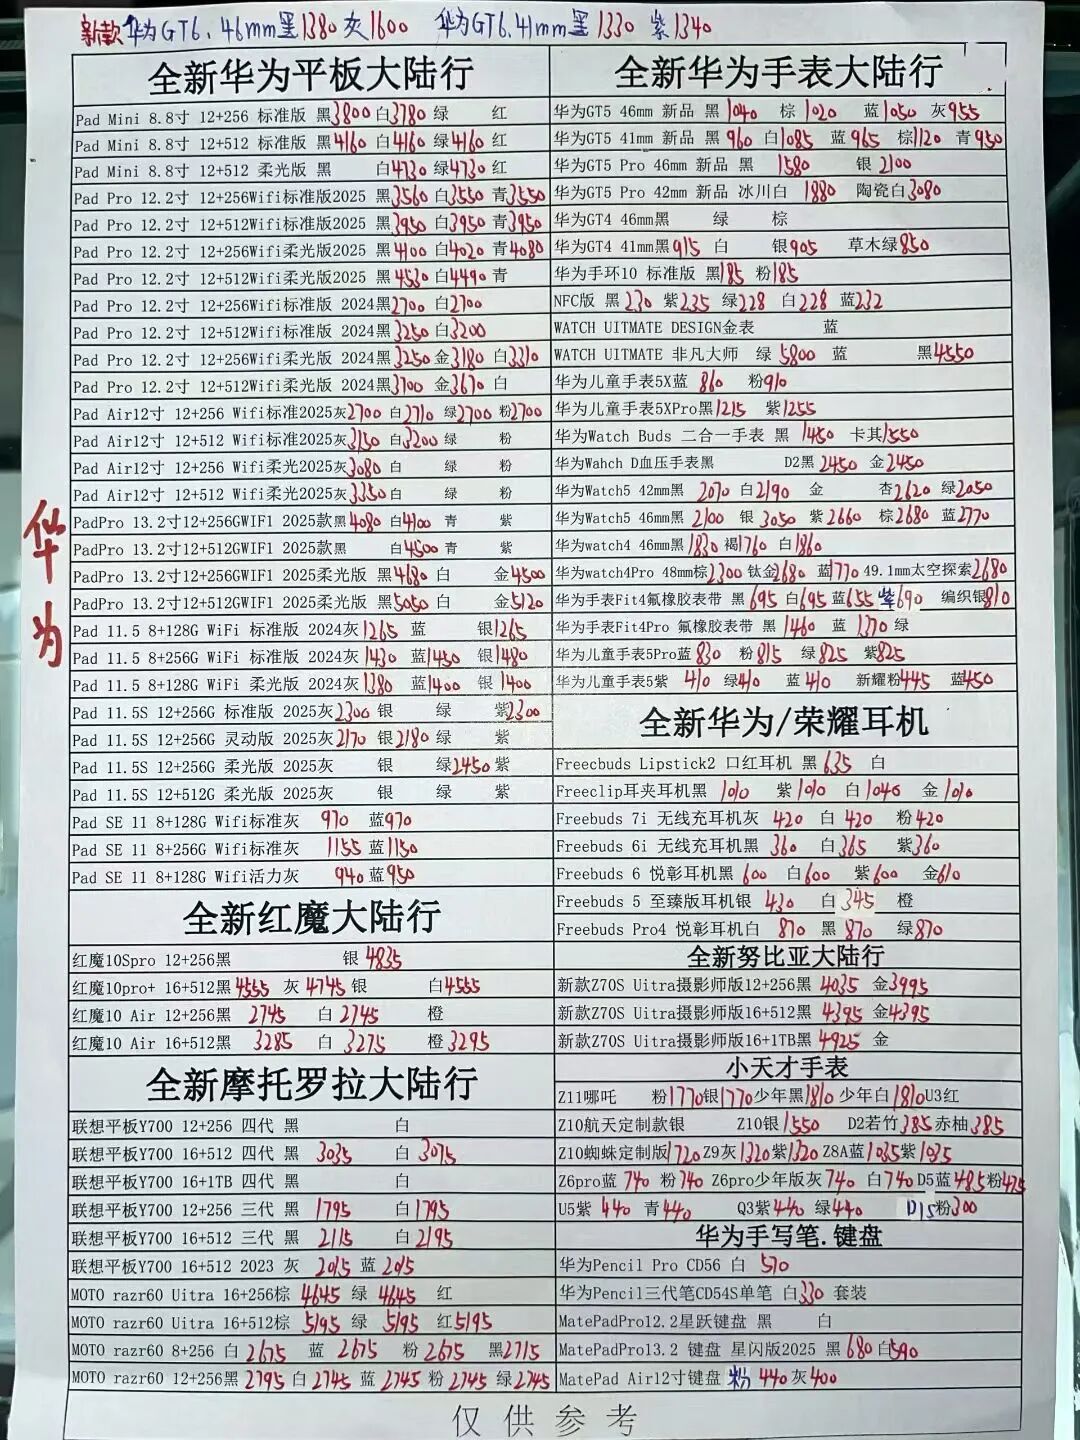 新款华为GT6.46mm黑1380灰1600 华为GT6.41mm黑1330 紫1340
华为
全新华为平板大陆行
Pad Mini 8.8寸 12+256 标准版 黑3800白3780绿 红
Pad Mini 8.8寸 12+512 标准版 黑4160白4160绿4160红
Pad Mini 8.8寸 12+512 柔光版 黑 白4730绿4730红
Pad Pro 12.2寸 12+256Wifi标准版2025 黑3560白3550青3550
Pad Pro 12.2寸 12+512Wifi标准版2025 黑3950白3950青3950
Pad Pro 12.2寸 12+256Wifi柔光版2025 黑4100白4020青4080
Pad Pro 12.2寸 12+512Wifi柔光版2025 黑4530白4490青
Pad Pro 12.2寸 12+256Wifi标准版 2024黑2700白2700
Pad Pro 12.2寸 12+512Wifi标准版 2024黑3250白3200
Pad Pro 12.2寸 12+256Wifi柔光版 2024黑3250金3180白3310
Pad Pro 12.2寸 12+512Wifi柔光版 2024黑3700金3670白
Pad Air12寸 12+256 Wifi标准2025灰2700白2710绿2700粉2700
Pad Air12寸 12+512 Wifi标准2025灰3150白3200绿 粉
Pad Air12寸 12+256 Wifi柔光2025灰3080白 绿 粉
Pad Air12寸 12+512 Wifi柔光2025灰3350白 绿 粉
PadPro 13.2寸12+256GWIF1 2025款黑4080白4100青 紫
PadPro 13.2寸12+512GWIF1 2025款黑 白4500青 紫
PadPro 13.2寸12+256GWIF1 2025柔光版 黑4680白 金4500
PadPro 13.2寸12+512GWIF1 2025柔光版 黑5050白 金5120
Pad 11.5 8+128G WiFi 标准版 2024灰1265 蓝 银1265
Pad 11.5 8+256G WiFi 标准版 2024灰1430 蓝1450 银1480
Pad 11.5 8+128G WiFi 柔光版 2024灰1380 蓝1400 银1400
Pad 11.5S 12+256G 标准版 2025灰2300银 绿 紫2300
Pad 11.5S 12+256G 灵动版 2025灰2170银2180绿 紫
Pad 11.5S 12+256G 柔光版 2025灰 银 绿2450紫
Pad 11.5S 12+512G 柔光版 2025灰 银 绿 紫
Pad SE 11 8+128G Wifi标准灰 970 蓝970
Pad SE 11 8+256G Wifi标准灰 1155蓝1150
Pad SE 11 8+128G Wifi活力灰 940蓝950
全新红魔大陆行
红魔10Spro 12+256黑 银4835
红魔10pro+ 16+512黑4555 灰4745银 白4555
红魔10 Air 12+256黑 2745 白2745 橙
红魔10 Air 16+512黑 3285 白3275 橙3295
全新摩托罗拉大陆行
联想平板Y700 12+256 四代 黑 白
联想平板Y700 16+512 四代 黑 3035 白3075
联想平板Y700 16+1TB 四代 黑 白
联想平板Y700 12+256 三代 黑 1795 白1795
联想平板Y700 16+512 三代 黑 2115 白2195
联想平板Y700 16+512 2023 灰 2015 蓝2015
MOTO razr60 Uitra 16+256棕 4645 绿 4645 红
MOTO razr60 Uitra 16+512棕 5195 绿 5195 红5195
MOTO razr60 8+256 白2675 蓝 2675 粉2675 黑2715
MOTO razr60 12+256黑2795白2745蓝2745粉2745绿2745
全新华为手表大陆行
华为GT5 46mm 新品 黑1040 棕1020 蓝1050 灰955
华为GT5 41mm 新品 黑960白1085蓝965棕1120青950
华为GT5 Pro 46mm 新品 黑 1580 银2100
华为GT5 Pro 42mm 新品 冰川白 1880 陶瓷白3080
华为GT4 46mm黑 绿 棕
华为GT4 41mm黑915 白 银905 草木绿850
华为手环10 标准版 黑185粉185
NFC版 黑230紫235绿228白228蓝232
WATCH UITMATE DESIGN金表 蓝
WATCH UITMATE 非凡大师 绿5800蓝 黑4550
华为儿童手表5X蓝 860 粉910
华为儿童手表5XPro黑1215 紫1255
华为Watch Buds 二合一手表 黑 1450 卡其1550
华为Wahch D血压手表黑 D2黑2450 金2450
华为Watch5 42mm黑 2070白2190金 杏2620绿2050
华为Watch5 46mm黑2100银3050紫2660棕2680蓝2770
华为watch4 46mm黑1830褐1760白1860
华为watch4Pro 48mm棕2300钛金2680蓝1770 49.1mm太空探索2680
华为手表Fit4氟橡胶表带 黑695白695蓝655紫690 编织银810
华为手表Fit4Pro 氟橡胶表带 黑1460蓝1370绿
华为儿童手表5Pro蓝830 粉815 绿825 紫825
华为儿童手表5紫 410绿410 蓝410 新耀粉445 蓝450
全新华为/荣耀耳机
Freecbuds Lipstick2 口红耳机 黑635 白
Freeclip耳夹耳机黑 1010 紫1010白1040金1010
Freebuds 7i 无线充耳机灰 420 白420 粉420
Freebuds 6i 无线充耳机黑 360 白365 紫360
Freebuds 6 悦彰耳机黑600 白600 紫600 金610
Freebuds 5 至臻版耳机银 430 白345 橙
Freebuds Pro4 悦彰耳机白 870黑870 绿870
全新努比亚大陆行
新款Z70S Uitra摄影师版12+256黑4035金3995
新款Z70S Uitra摄影师版16+512黑4395金4395
新款Z70S Uitra摄影师版16+1TB黑4925金
小天才手表
Z11哪吒 粉1770银1770少年黑1810少年白1810U3红
Z10航天定制款银 Z10银1550 D2若竹385赤柚385
Z10蜘蛛定制版1720Z9灰1320紫1320Z8A蓝1035紫1035
Z6pro蓝740粉740Z6pro少年版灰740白740D5蓝485粉475
U5紫 440 青440 Q3紫440绿440 D15粉300
华为手写笔.键盘
华为Pencil Pro CD56 白 570
华为Pencil三代笔CD54S单笔 白330套装
MatePadPro12.2星跃键盘 黑 白
MatePadPro13.2 键盘 星闪版2025 黑680白590
MatePad Air12寸键盘 粉440灰400
仅供参考